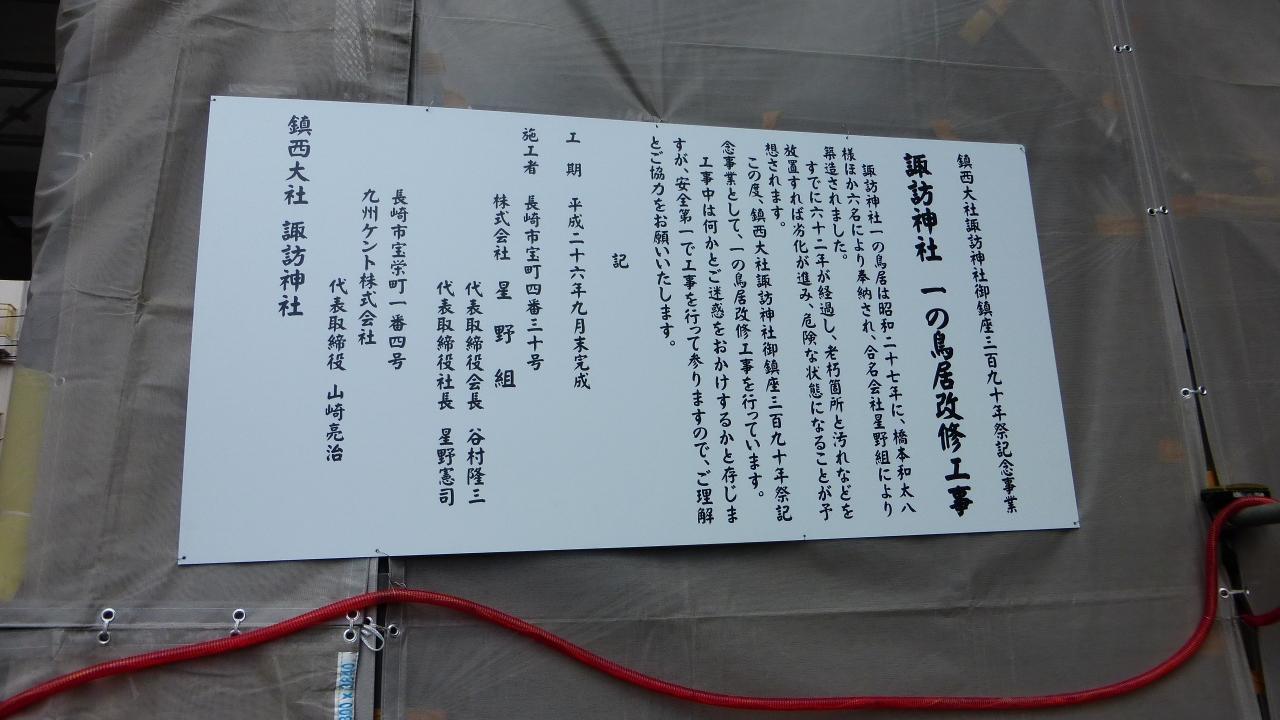 鎮西大社諏訪神社御鎮座三百九十年祭記念事業
諏訪神社 一の鳥居改修工事
諏訪神社一の鳥居は昭和二十七年に、橋本和太八
様ほか六名により奉納され、合名会社星野組により
築造されました。
すでに六十二年が経過し、老朽箇所と汚れなどを
放置すれば劣化が進み、危険な状態になることが予
想されます。
この度、鎮西大社諏訪神社御鎮座三百九十年祭記
念事業として、一の鳥居改修工事を行っています。
工事中は何かとご迷惑をおかけするかと存じま
すが、安全第一で工事を行って参りますので、ご理解
とご協力をお願いいたします。
記
工 期 平成二十六年九月末完成
施工者 長崎市宝町四番三十号
株式会社 星野組
代表取締役会長 谷村隆三
代表取締役社長 星野憲司
長崎市宝栄町一番四号
九州ケント株式会社
代表取締役 山崎亮治
鎮西大社 諏訪神社